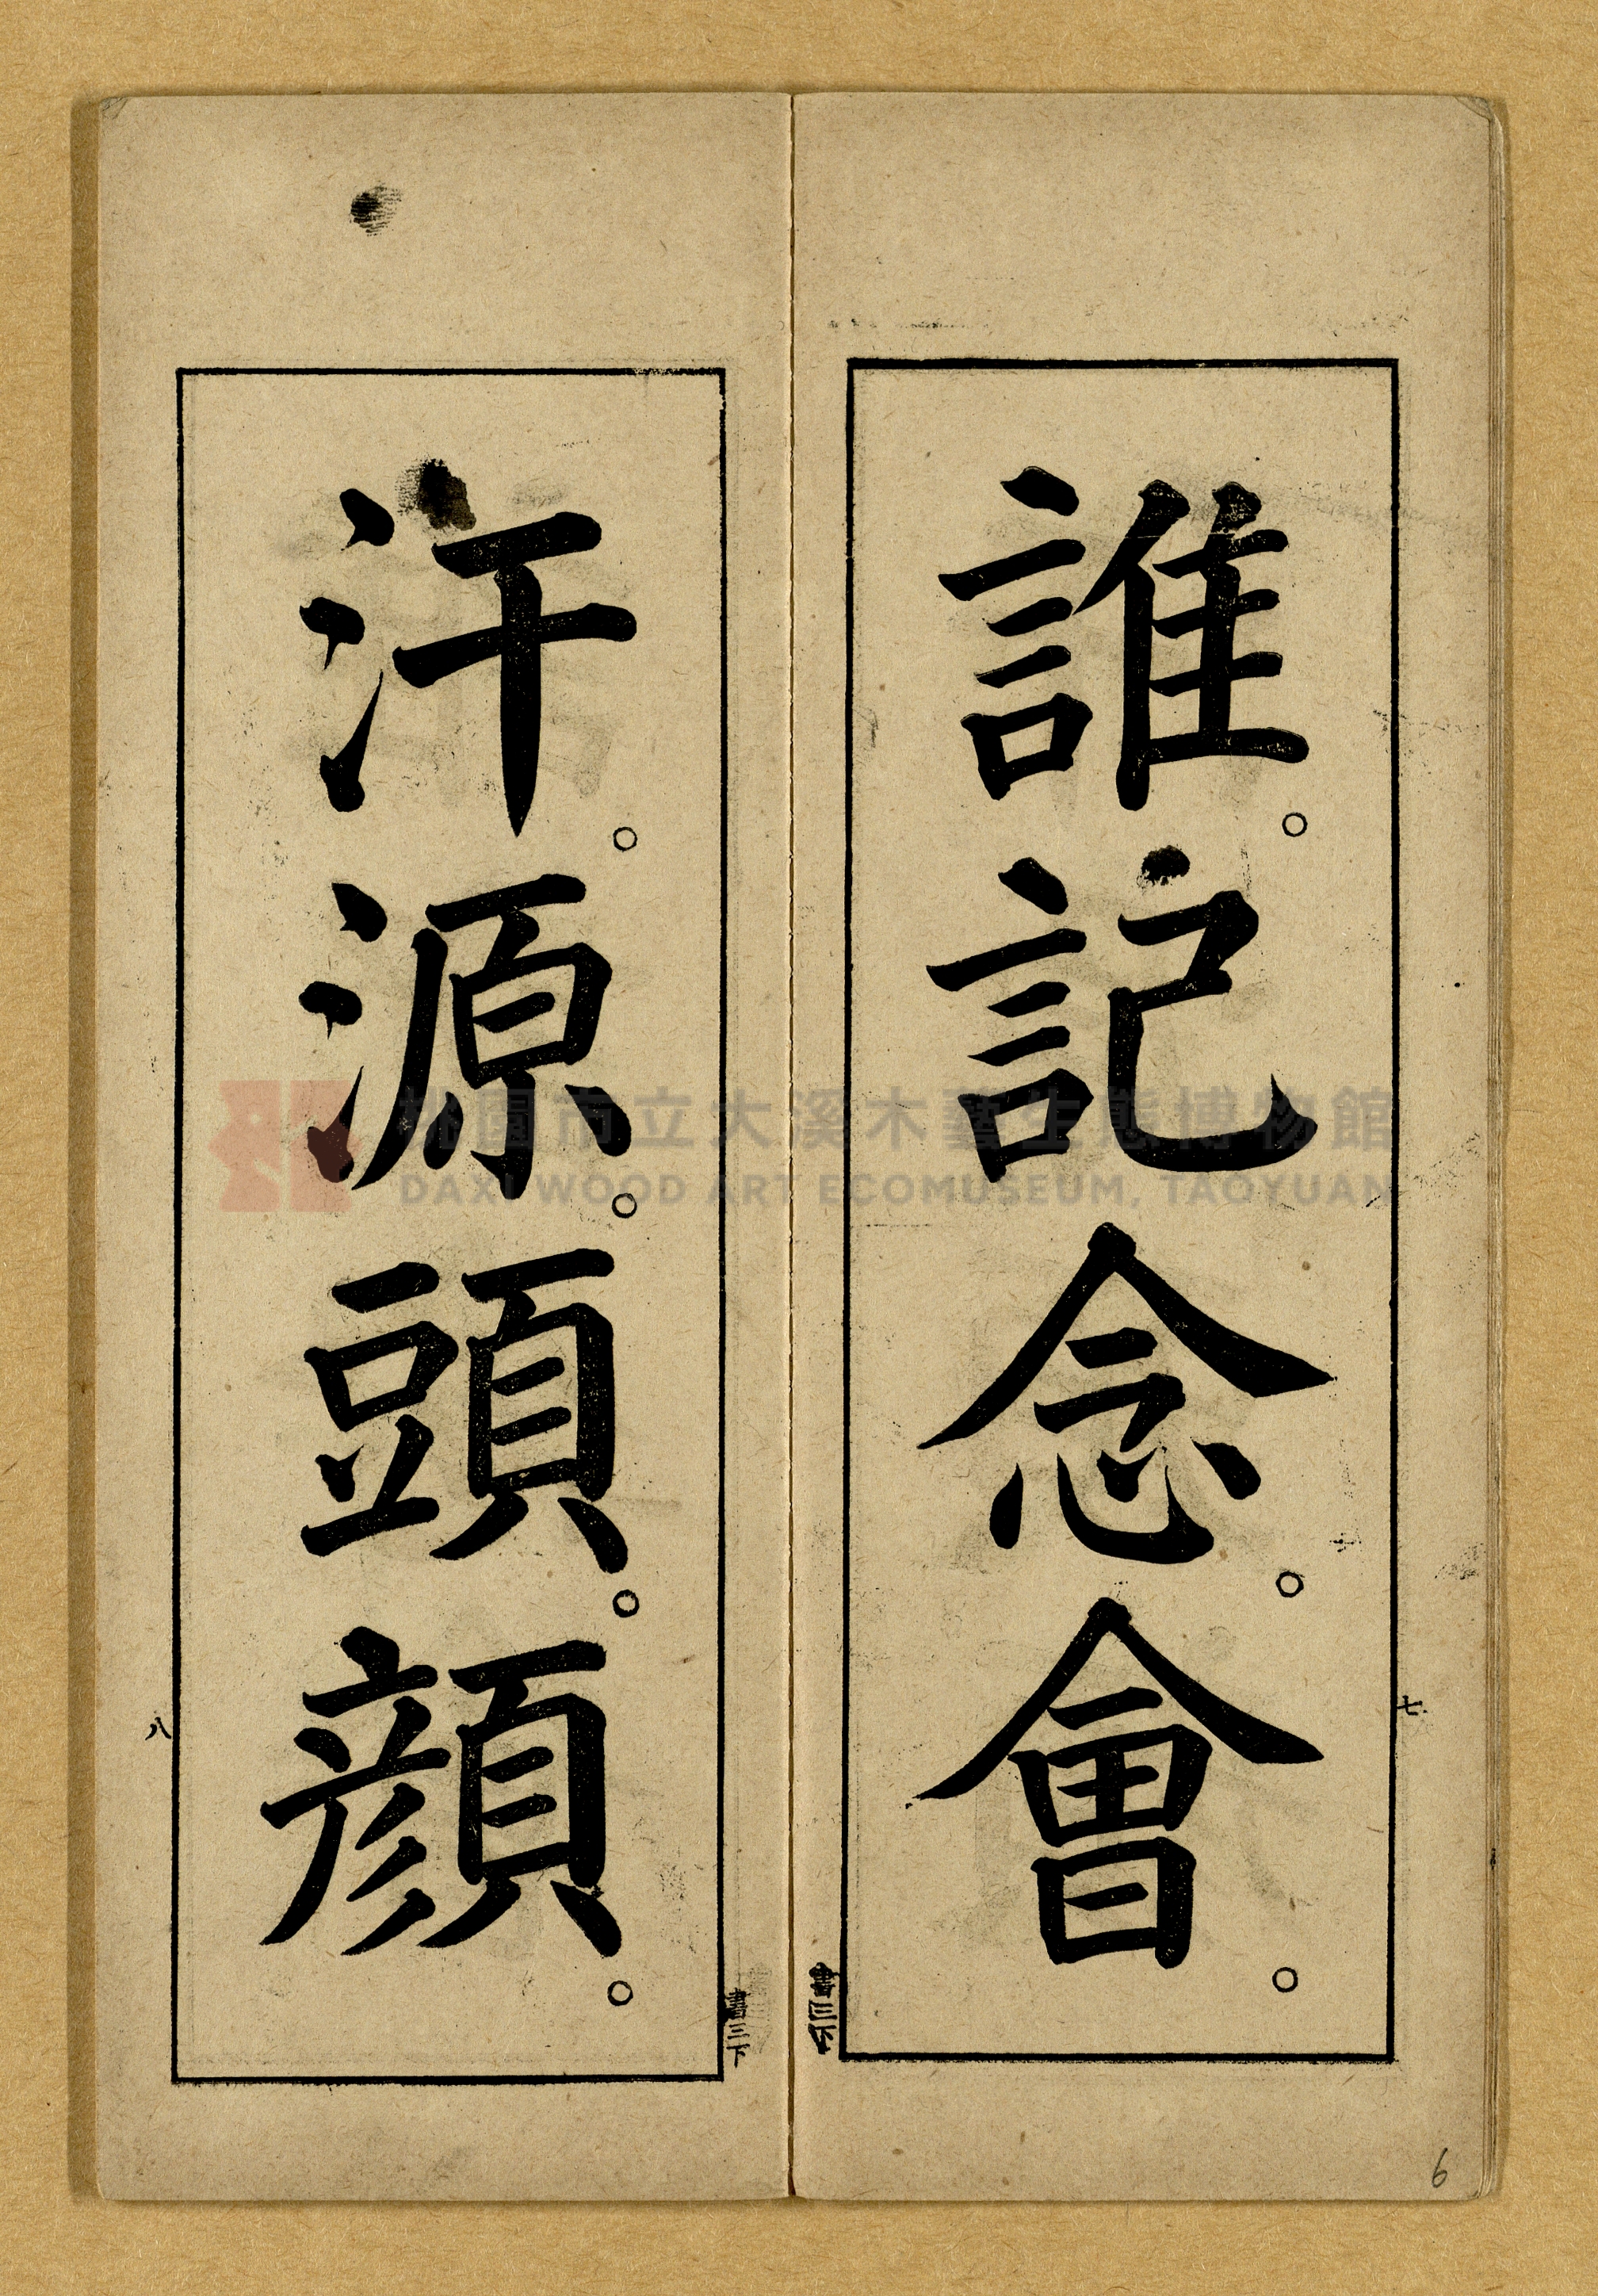 誰。記念會。
七
書三下
汗。源。頭。顔。
書三下
八
6
桃園市立大溪木藝生態博物館
DAXI WOOD ART ECOMUSEUM, TAOYUAN